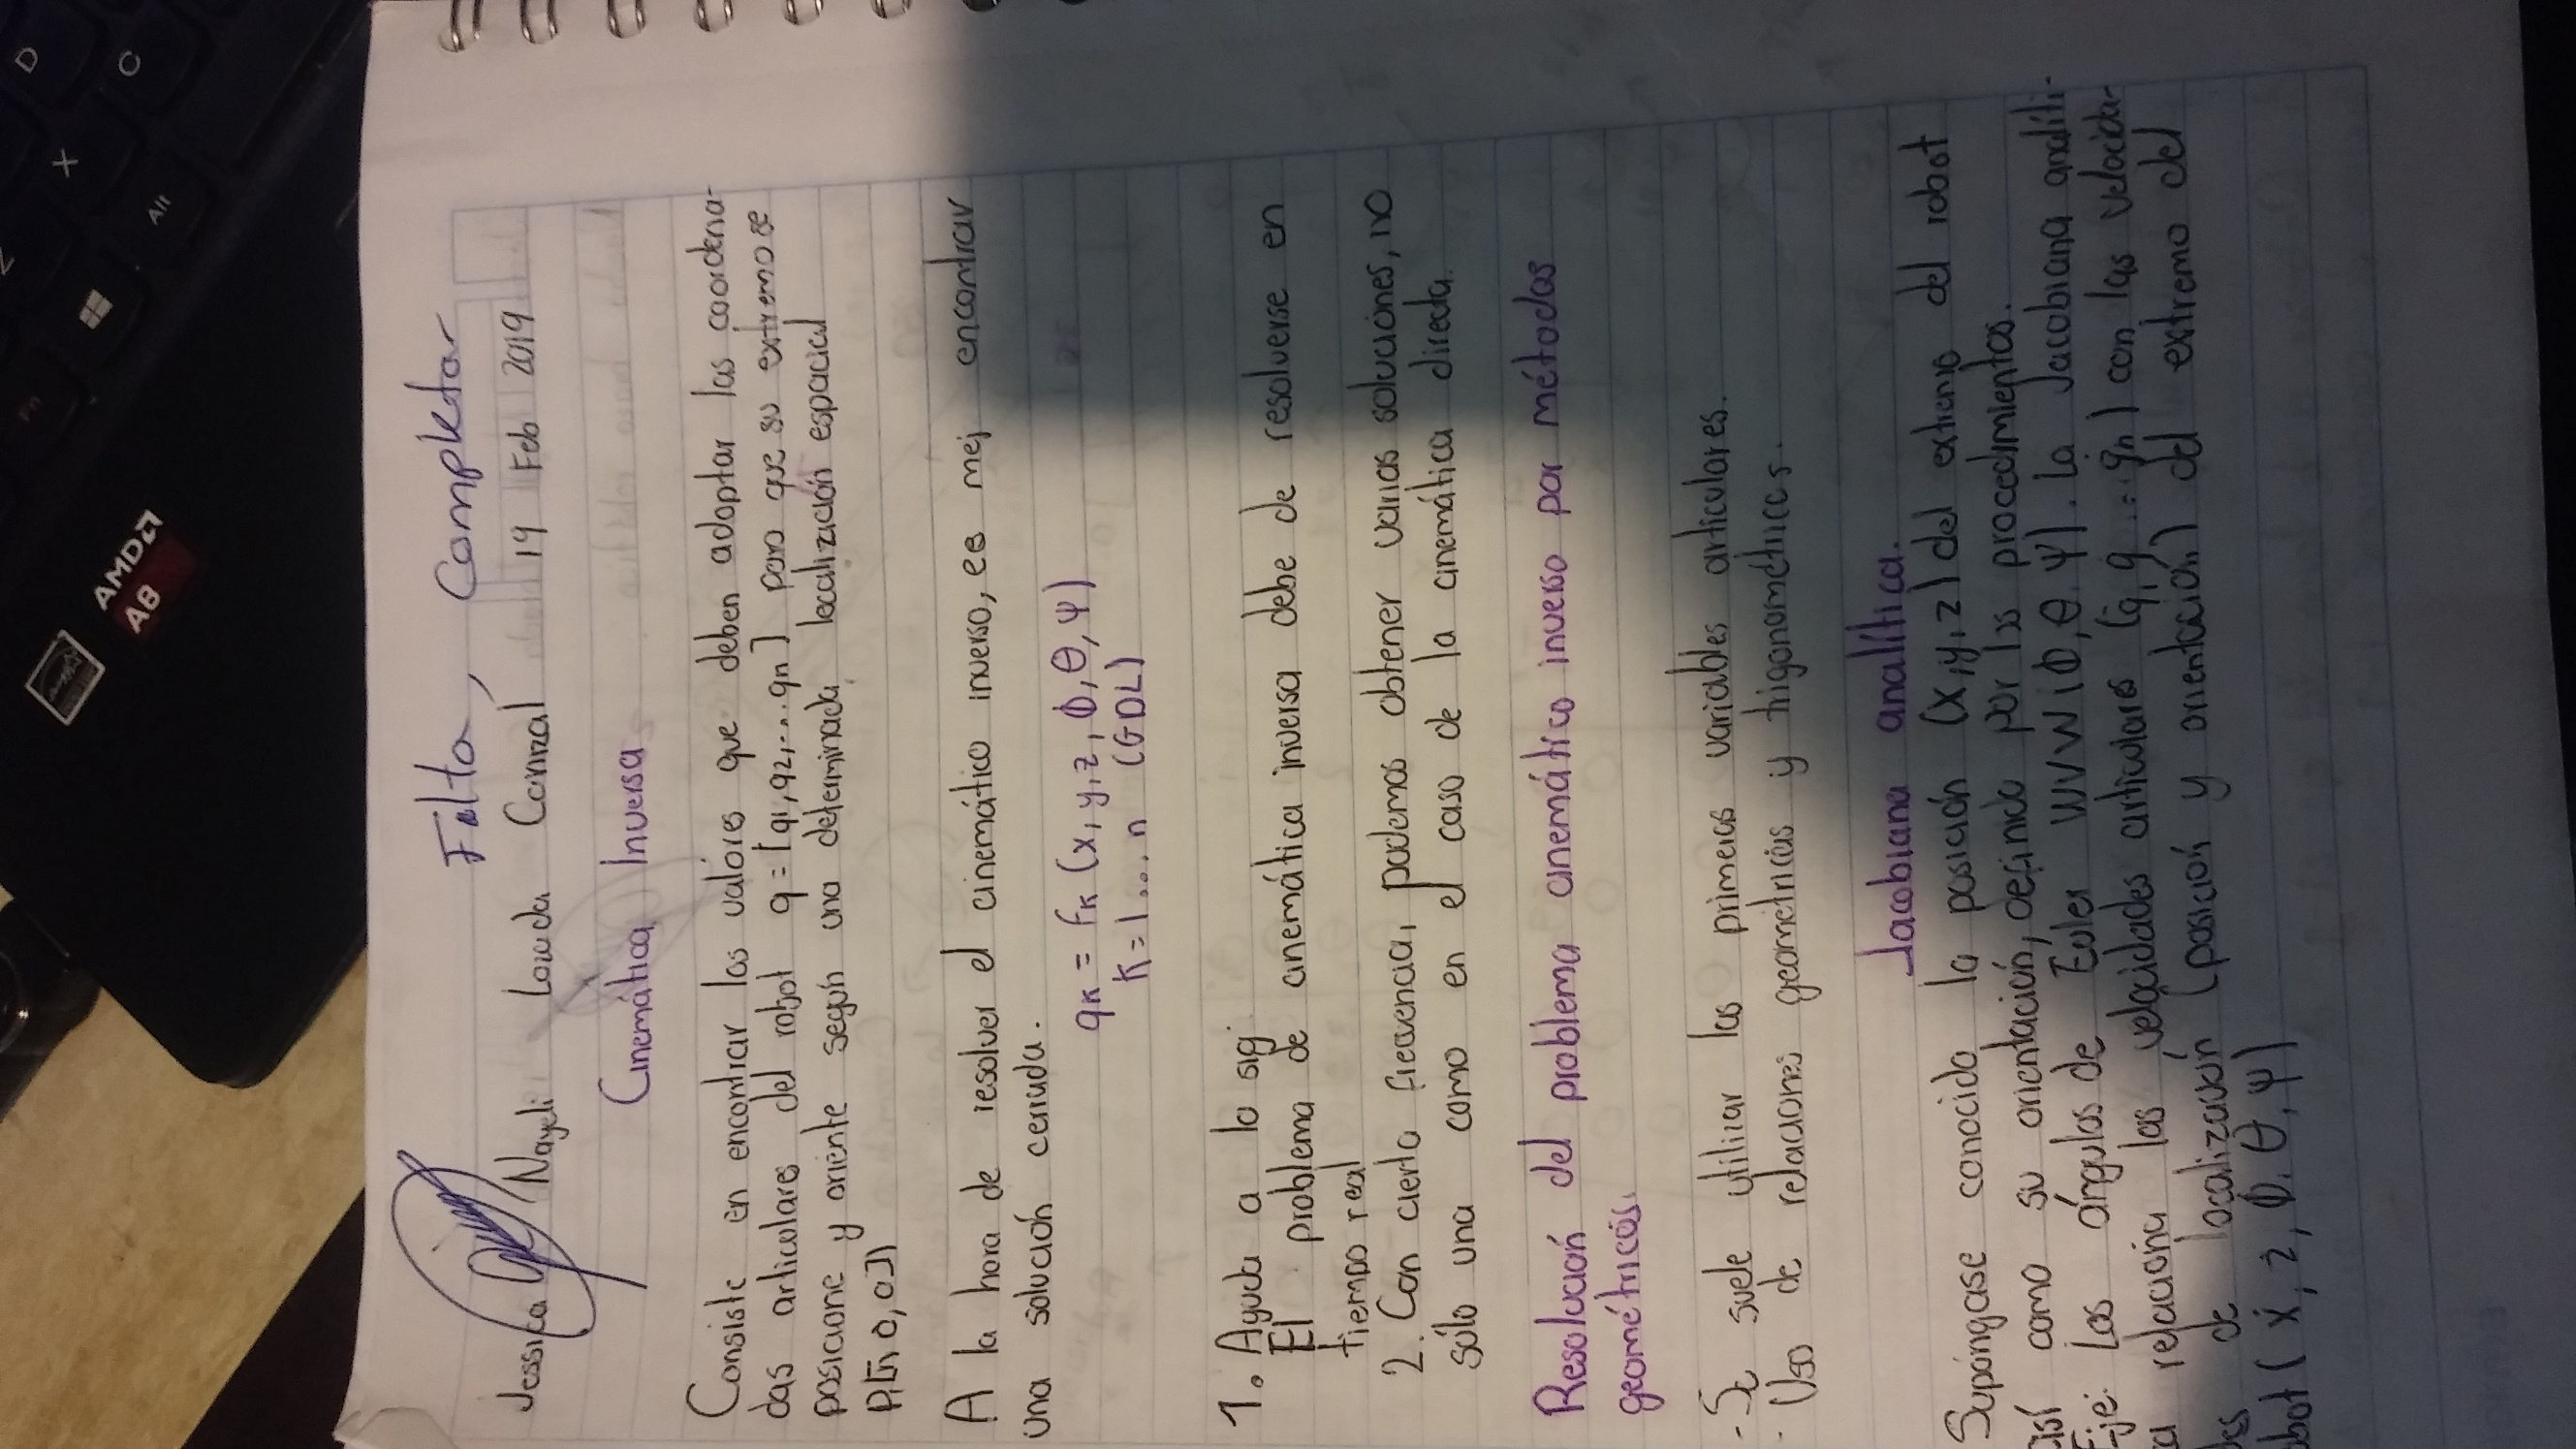 Falta, Completar
Jessica Nayeli Lowda Corral 19 Feb 2019
Cinemática Inversa
Consiste en encontrar los valores que deben adoptar las coordena-
das articulares del robot q=[q1,q2,...qn] para que su extremo se
posicione y oriente según una determinada localización espacial
A la hora de resolver el cinemático inverso, es mej encontrar
una solución cerrada.
qk = fk (x,y,z,ϕ,θ,ψ)
k=1...n (GDL)
1. Ayuda a lo sig.
El problema de cinemática inversa debe de resolverse en
tiempo real
2. Con cierta frecuencia, podemos obtener varias soluciones, no
sólo una como en el caso de la cinemática directa.
Resolución del problema cinemático inverso por métodos
geométricos.
- Se suele utilizar las primeras variables articulares.
- Uso de relaciones geométricas y trigonométricas.
Jacobiana analítica.
Supóngase conocida la posición (x,y,z) del extremo del robot
así como su orientación, definida por los procedimientos.
Eje: Los ángulos de Euler WVW(ϕ,θ,ψ). la Jacobiana analíti-
relaciona las velocidades articulares (q,q...qn) con las velocida-
des de localización (posición y orientación) del extremo del
robot (ẋ, z, ϕ, θ, ψ)
AMD
A8
D
C
X
Z
Alt
Fn